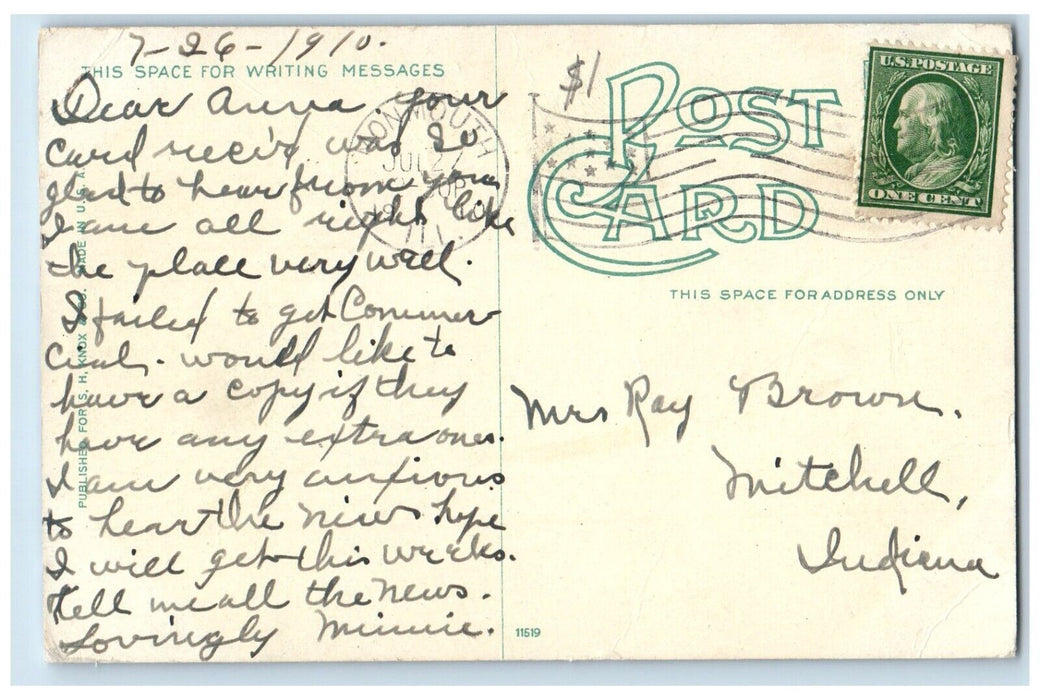 7-26-1910.
THIS SPACE FOR WRITING MESSAGES
Dear Anna, your
Card rec'd was so
glad to hear from you
I am all right like
the place very well.
I failed to get Commer
cial. would like to
have a copy if they
have any extra ones.
I am very anxious
to hear the news hope
I will get this weeks.
Tell me all the news.
Lovingly Minnie.
PUBLISHED FOR S. H. KNOX & CO. MADE IN U.S.A.
MONMOUTH
JUL 27
ILL
$1
POST
CARD
U.S. POSTAGE
ONE CENT
THIS SPACE FOR ADDRESS ONLY
Mrs Ray Brown.
Mitchell,
Indiana
11519